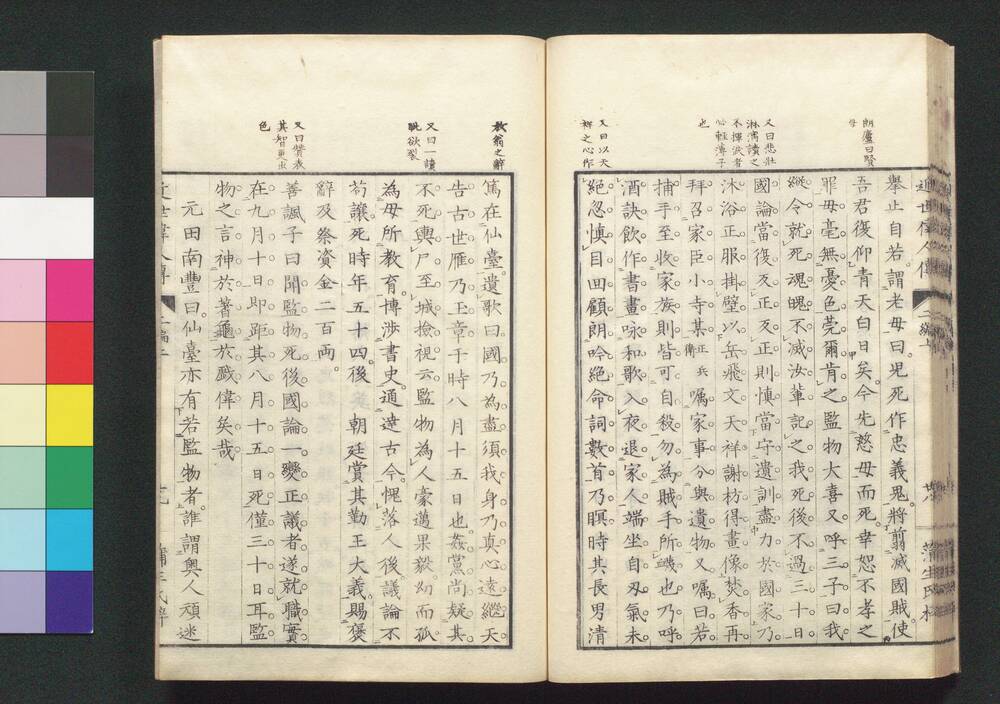 朗廬曰賢
母
又曰悲壯
淋漓讀之
不揮涙者
必輕薄子
也
又曰以天
祥之心作
近世偉人傳
二編上
蒲生氏梓
舉止自若謂老母曰兒死作忠義鬼將翦滅國賊使
吾君復仰青天白日矣今先慈母而死幸恕不孝之
罪母毫無憂色莞爾肯之監物大喜又呼三子曰我
縱令就死魂魄不滅汝輩記之我死後不過三十日
國論當復反正反正則愼當守遺訓盡力於國家乃
沐浴正服掛壁以岳飛文天祥謝枋得畫像焚香再
拜召家臣小寺某正兵衛囑家事分與遺物又囑曰若
捕手至收家族則皆可自殺勿為賊手所也乃呼
酒訣飲作書畫咏和歌入夜退家人端坐自刃氣未
絕忽慎目回顧朗吟絕命詞數首乃瞑時其長男清
教翁之辭
又曰一讀
眦欲裂
又曰贊表
其智更出
色
篤在仙臺遺歌曰國乃為盡須我身乃真心遠繼天
告古世雁乃玉章于時八月十五日也姦黨尚疑其
不死輿尸至城檢視云監物為人豪邁果毅幼而孤
為母所教育博涉書史通達古今愧落人後議論不
苟讓死時年五十四後　朝廷賞其勤王大義賜褒
辭及祭資金二百兩
善諷子曰聞監物死後國論一變正議者遂就職實
在九月十日即距其八月十五日死僅三十日耳監
物之言神於蓍龜於戲偉矣哉
元田南豐曰仙臺亦有若監物者誰謂輿人頑迷
近世偉人傳